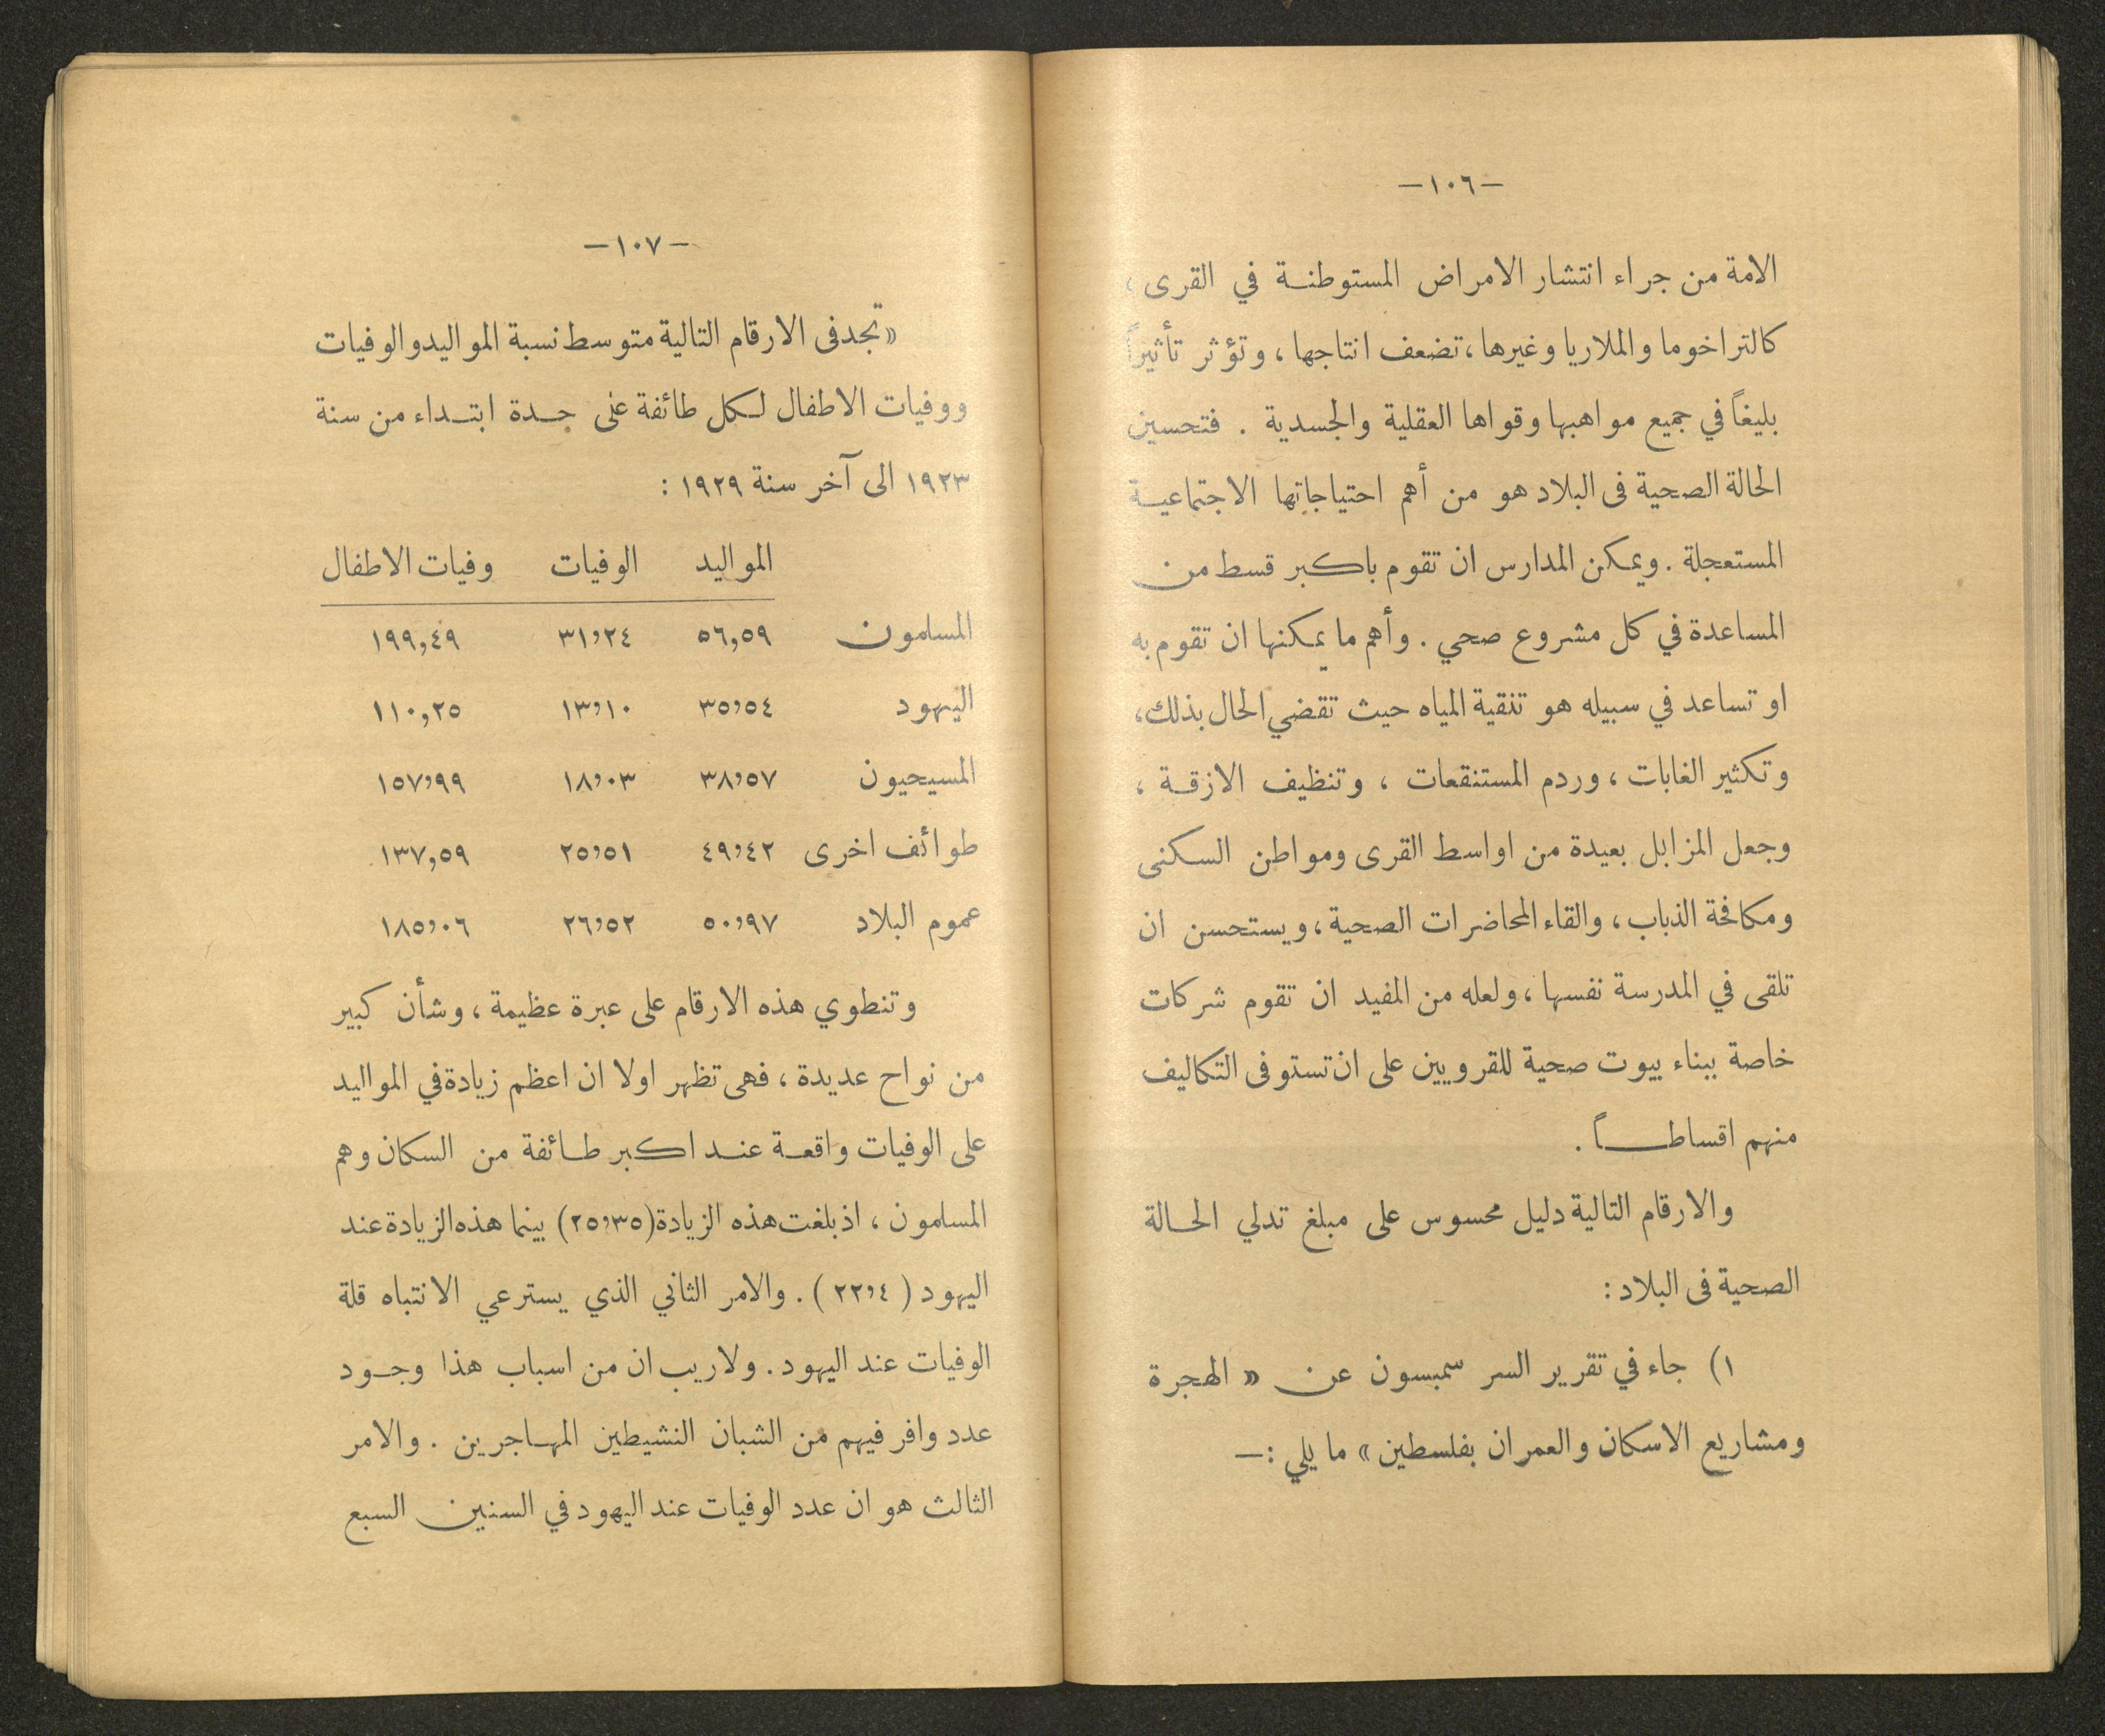 —١٠٦—
الامة من جراء انتشار الامراض المستوطنة في القرى ،
كالتراخوما والملاريا وغيرها ، تضعف انتاجها ، وتؤثر تأثيراً
بليغاً في جميع مواهبها وقواها العقلية والجسدية . فتحسين
الحالة الصحية فى البلاد هو من أهم احتياجاتها الاجتماعية
المستعجلة . ويمكن المدارس ان تقوم باكبر قسط من
المساعدة في كل مشروع صحي . وأهم ما يمكنها ان تقوم به
او تساعد في سبيله هو تنقية المياه حيث تقضي الحال بذلك،
وتكثير الغابات ، وردم المستنقعات ، وتنظيف الازقة ،
وجعل المزابل بعيدة من اواسط القرى ومواطن السكنى
ومكافحة الذباب ، والقاء المحاضرات الصحية ، ويستحسن ان
تلقى في المدرسة نفسها ، ولعله من المفيد ان تقوم شركات
خاصة ببناء بيوت صحية للقرويين على ان تستوفى التكاليف
منهم اقساطاً .
والارقام التالية دليل محسوس على مبلغ تدلي الحالة
الصحية فى البلاد :
١) جاء في تقرير السر سمبسون عن « الهجرة
ومشاريع الاسكان والعمران بفلسطين » ما يلي :—
—١٠٧—
« تجد فى الارقام التالية متوسط نسبة المواليد والوفيات
ووفيات الاطفال لكل طائفة على حدة ابتداء من سنة
١٩٢٣ الى آخر سنة ١٩٢٩ :
المواليد الوفيات وفيات الاطفال
المسلمون ٥٦,٥٩ ٣١,٢٤ ١٩٩,٤٩
اليهود ٣٥,٥٤ ١٣,١٠ ١١٠,٢٥
المسيحيون ٣٨,٥٧ ١٨,٠٣ ١٥٧,٩٩
طوائف اخرى ٤٩,٤٢ ٢٥,٥١ ١٣٧,٥٩
عموم البلاد ٥٠,٩٧ ٢٦,٥٢ ١٨٥,٠٦
وتنطوي هذه الارقام على عبرة عظيمة ، وشأن كبير
من نواح عديدة ، فهى تظهر اولا ان اعظم زيادة في المواليد
على الوفيات واقعة عند اكبر طائفة من السكان وهم
المسلمون ، اذ بلغت هذه الزيادة (٢٥,٣٥) بينما هذه الزيادة عند
اليهود ( ٢٢,٤ ) . والامر الثاني الذي يسترعي الانتباه قلة
الوفيات عند اليهود . ولا ريب ان من اسباب هذا وجود
عدد وافر فيهم من الشبان النشيطين المهاجرين . والامر
الثالث هو ان عدد الوفيات عند اليهود في السنين السبع